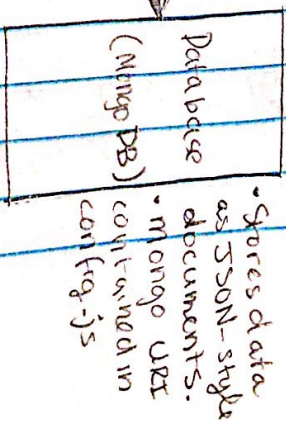 Database
(Mongo DB)
• Stores data
as JSON-style
documents.
• mongo URI
contained in
config.js